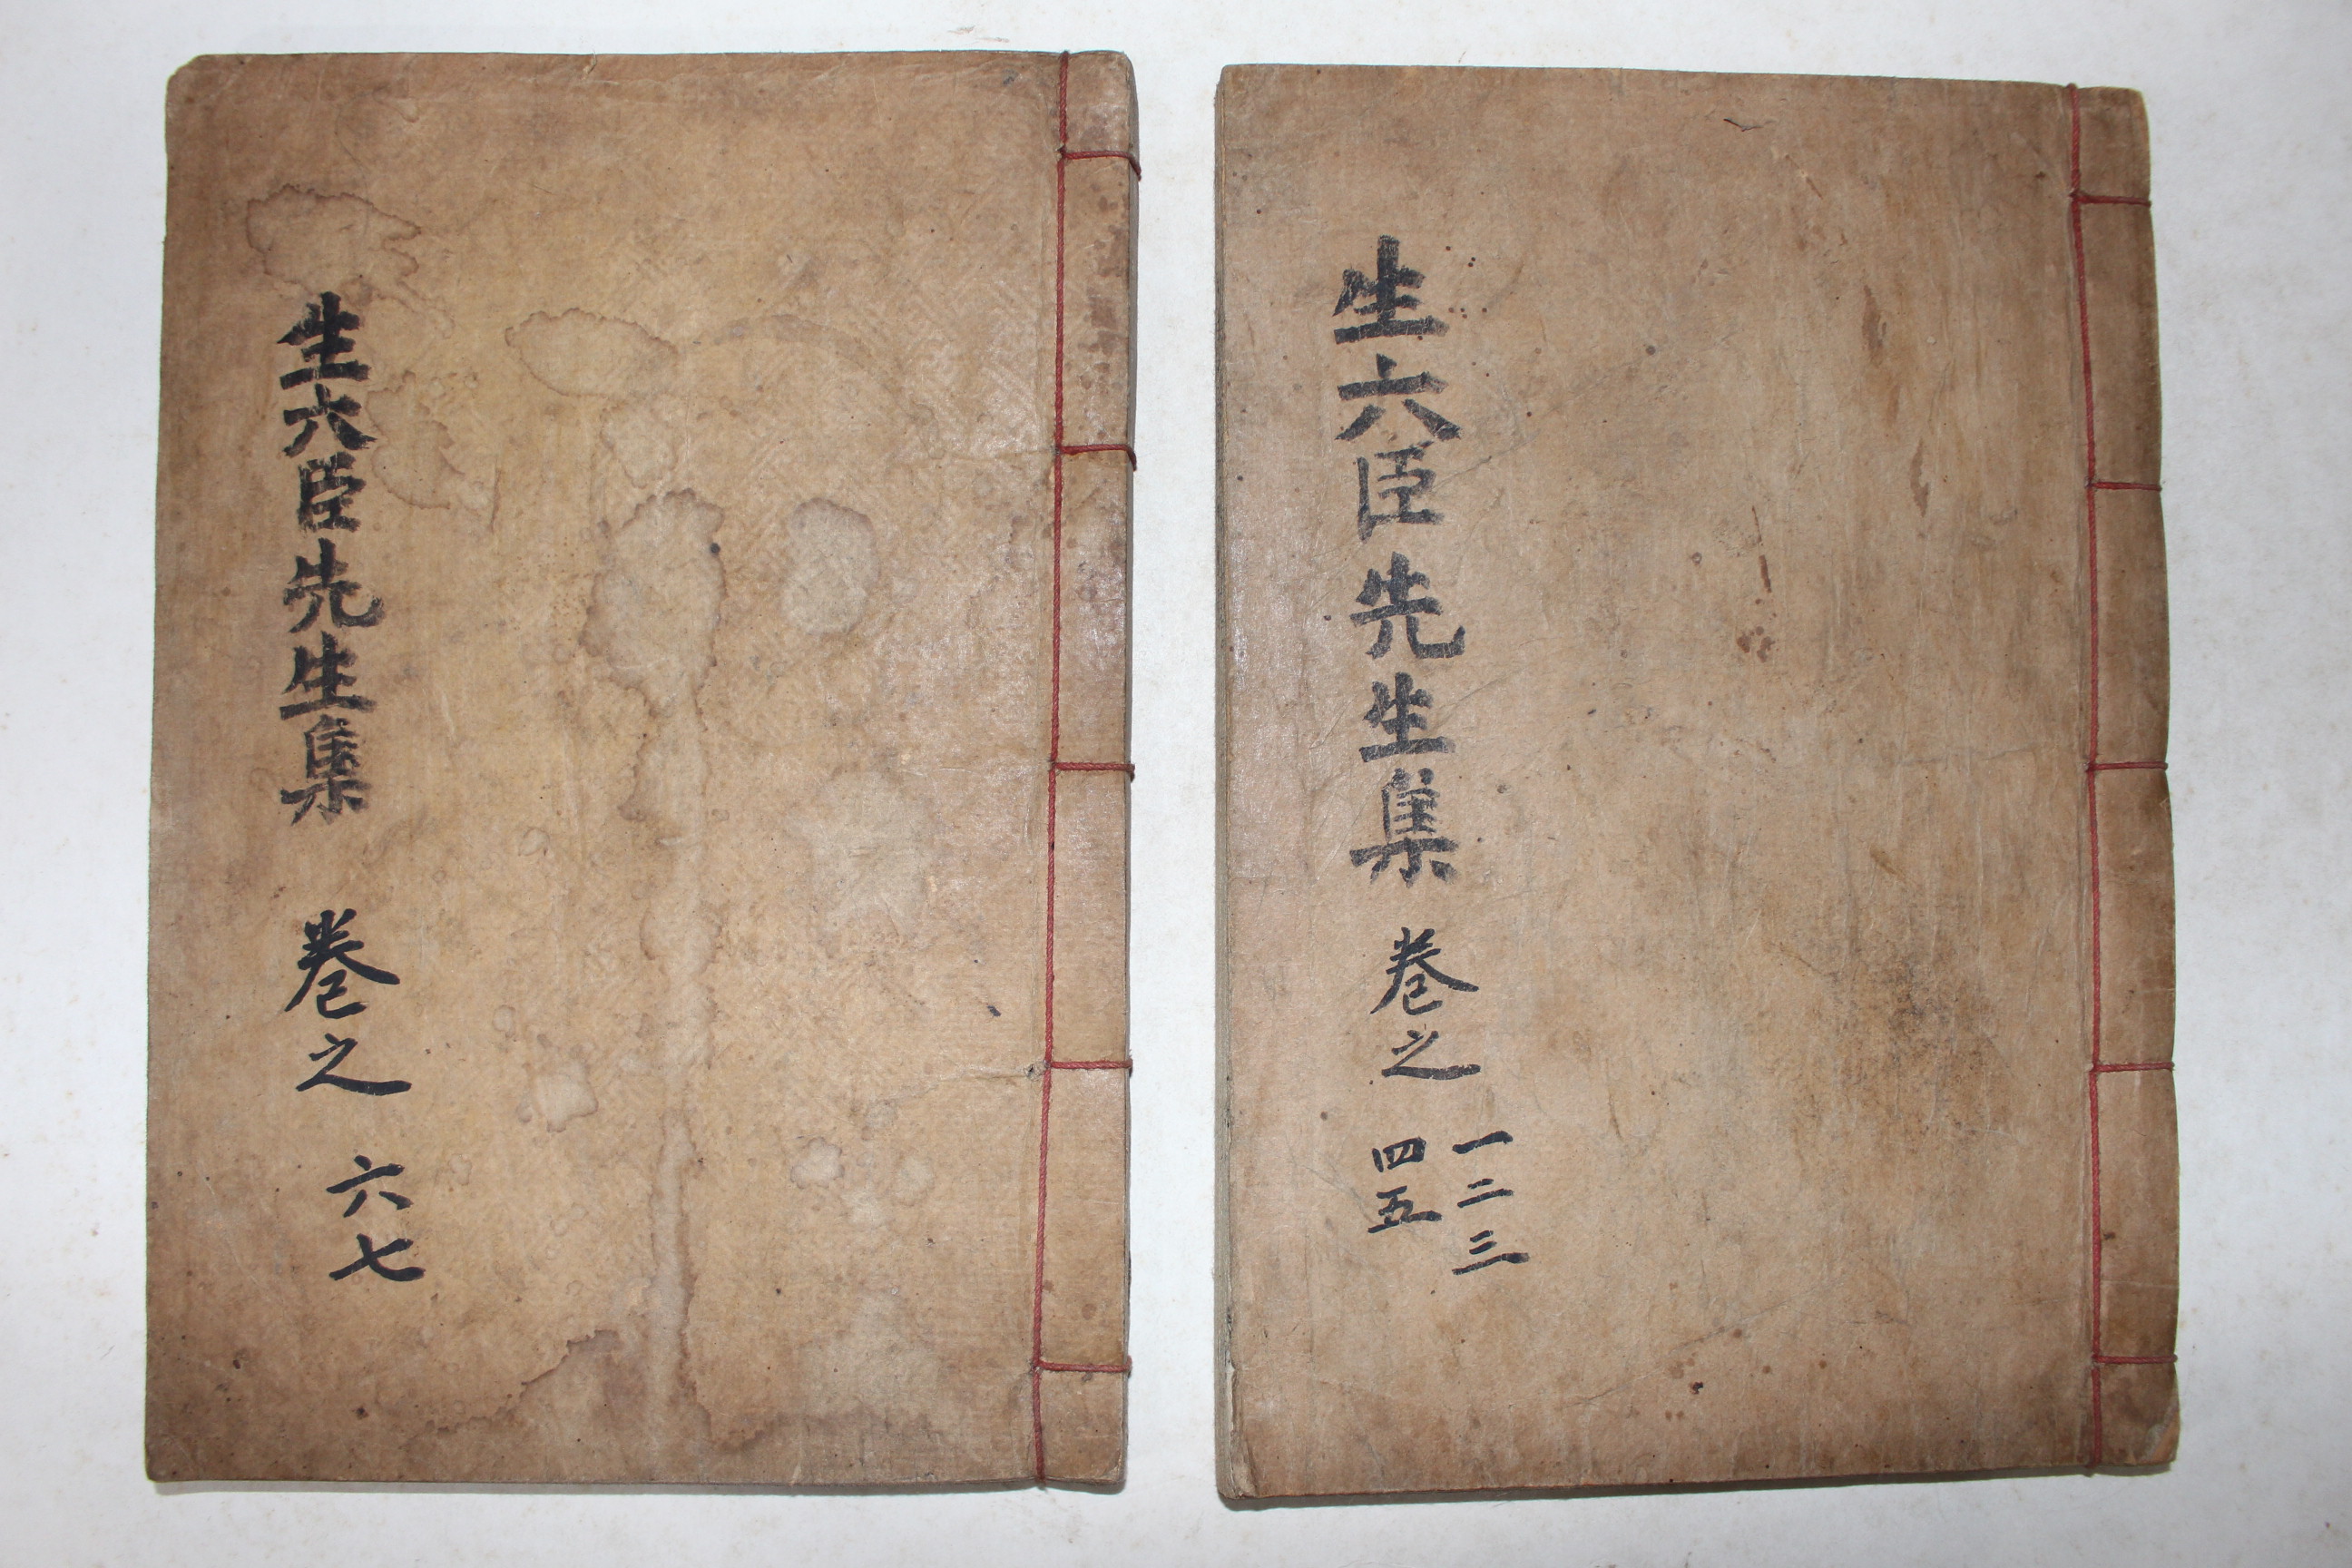 生六臣先生集 卷之 一二三
四五
生六臣先生集 卷之 六七